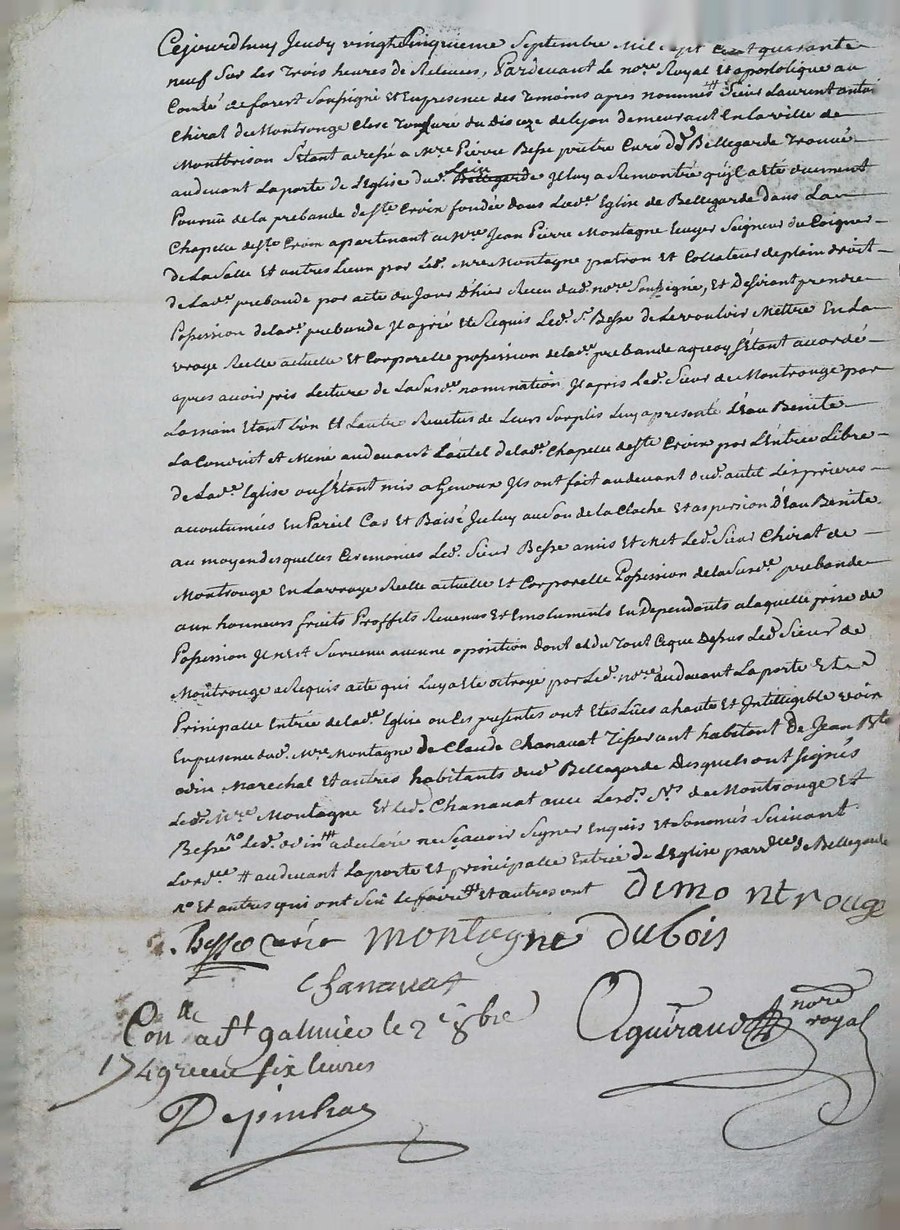 Cejourdhuy Jeudy vingt Cinquieme Septembre Mil Sept cent quarante
neuf Sur Les Trois heures de Relevee, Pardevant Le nore. Royal Et apostolique au
Comté de forest Soussigné Et En presence des Temoins apres nommés # Sieur Laurent antoi
Chirat de Montrouge Clerc Tonsuré du Dioceze de Lyon demeurant En La ville de
Montbrison S'étant adressé a Mre. Pierre Besse prêtre Curé de Bellegarde Trouvé
audevant La porte de L'Eglise dud. lieu Bellegarde Jl luy a Remontré qu'jl a été duement
Pourvû de la prebande de Ste. Croix fondée dans Lad. Eglise de Bellegarde dans La
Chapelle de Ste. Croix appartenant a Mre. Jean Pierre Montagne Ecuyer Seigneur du Poigner
de La Salle Et autres Lieux par Led. Mre. Montagne patron Et Collateur de plein droit
de Lad. prebande par acte du Jour D'hier Recu dud. nore. Soussigné, Et Desirant prendre
Possession de lad. prebande Jl a prié Et Requis Led. Sr. Besse de Le vouloir Mettre En La
vraye Reelle actuelle Et Corporelle possession de lad. prebande a quoy S'étant accordé
apres avoir pris Lecture de La Susd. nomination Jl a pris Led. Sieur de Montrouge par
La main Etant L'un Et L'autre Revetus de Leurs Surplis Luy a presenté L'Eau Benite
La Conduit et Mené audevant L'autel de lad. Chapelle de Ste. Croix par L'Entrée Libre
de Lad. Eglise ou S'Étant mis a Genoux Jls ont fait audevant dud. autel Les prieres
acoutumées En Pareil Cas Et Baisé Jceluy au Son de la Cloche Et aspersion D'Eau Benite
au moyen desquelles Ceremonies Led. Sieur Besse a mis Et Met Led. Sieur Chirat de
Montrouge En La vraye Reelle actuelle Et Corporelle Possession de la Susd. prebande
aux honneurs fruits Proffits Revenus Et Emoluments En Dependants a laquelle prise de
Possession Jl n'est Survenu aucune oposition dont et du Tout Ce que Dessus Led. Sieur de
Montrouge a Requis acte qui Luy a Eté octroyé par Led. nore. audevant La porte Et
Principalle Entrée de lad. Eglise ou Les presentes ont Etés Lües a haute Et Intelligible voix
En presence dud. Mre. Montagne de Claude Chanavat Tisserant habitant De Jean Bte
odin Marechal Et autres habitants dud. Bellegarde Desquels ont signés
Led. Mre. Montagne Et Led. Chanavat avec Lesd. Srs. de Montrouge Et
Besse Led. odin a declaré ne Sçavoir Signer Enquis Et Sommés Suivant
Lord. # audevant La porte et principalle Entrée de L'Eglise parr.lle de Bellegarde
et autres ont
demontrouge
Besse curé montagne dubois
Chanavat
Conlle. a St galmier le 2e 8bre
1749 reçu six livres
Aguiraud nore royal
Depinhac